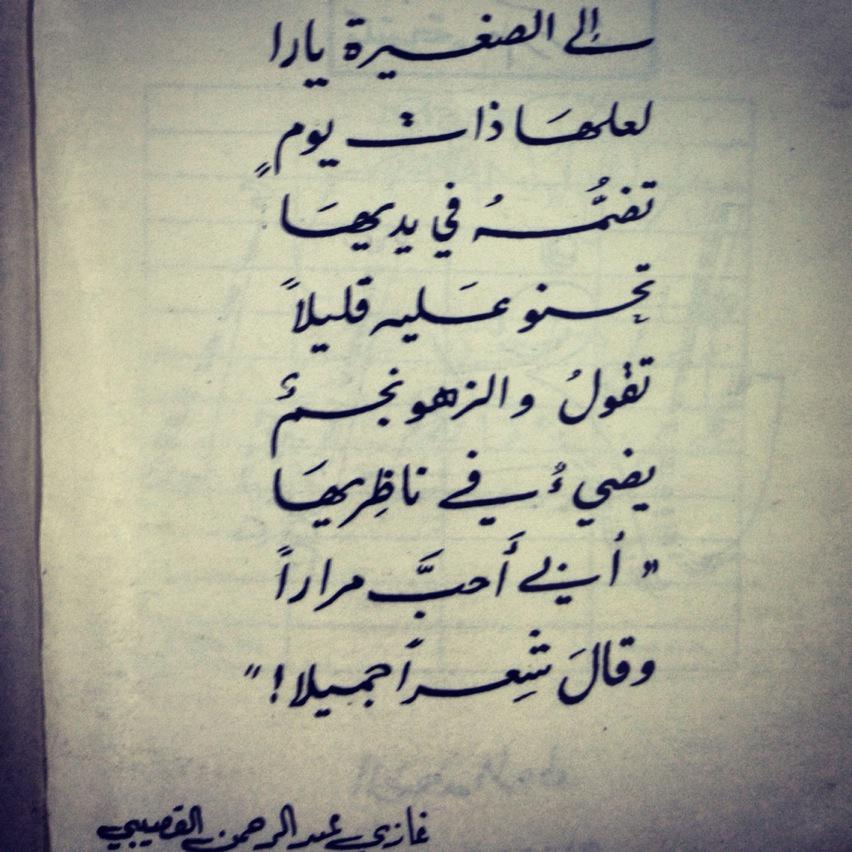 إلى الصغيرة يارا
لعلهَا ذات يومٍ
تضمُّهُ في يديهَا
تحنو عَليه قليلاً
تقولُ والزهو نجمٌ
يضيءُ في ناظِريهَا
" أبي أَحبَّ مراراً
وقالَ شِعراً جميلا! "
غازي عبد الرحمن القصيبي